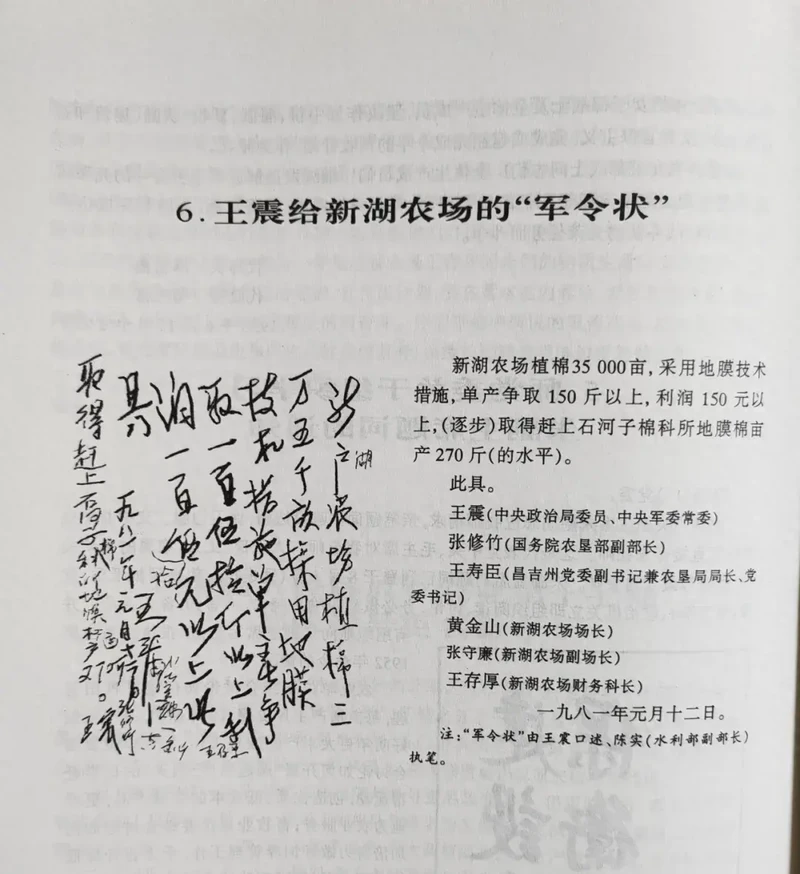 6.王震给新湖农场的“军令状”
新湖农场植棉三
万五千亩采用地膜
技术措施单产争
取一百伍拾斤以上利
润一百伍拾元以上此
具
一九八一年元月十二日
王震
取得赶上石河子棉科所地膜棉亩产270斤。
新湖农场植棉35 000亩,采用地膜技术
措施,单产争取 150 斤以上,利润 150 元以
上,(逐步)取得赶上石河子棉科所地膜棉亩
产 270 斤(的水平)。
此具。
王震(中央政治局委员、中央军委常委)
张修竹(国务院农垦部副部长)
王寿臣(昌吉州党委副书记兼农垦局局长、党
委书记)
黄金山(新湖农场场长)
张守廉(新湖农场副场长)
王存厚(新湖农场财务科长)
一九八一年元月十二日。
注:“军令状”由王震口述、陈实(水利部副部长)
执笔。